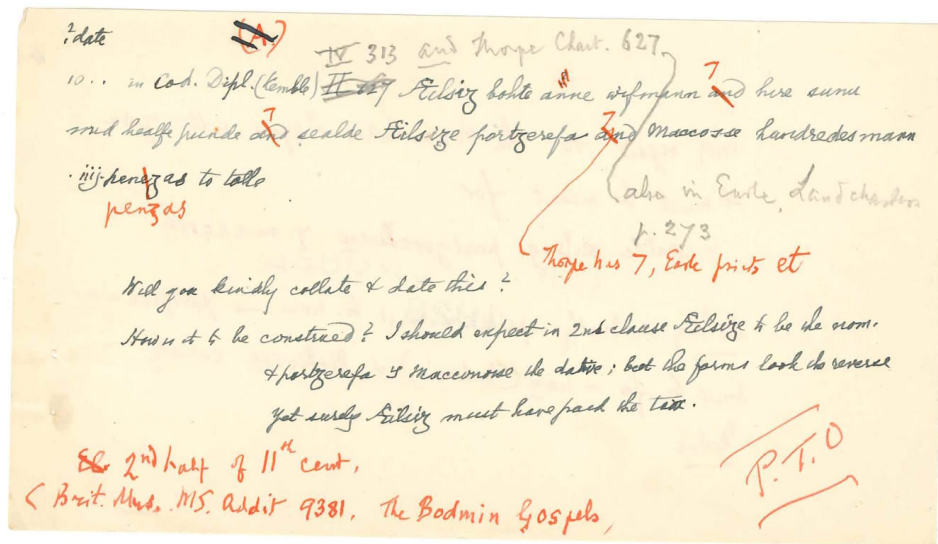 ? date (A.)
IV 313 and Thorpe Chart. 627
10 . . in Cod. Dipl. (Kemble) II Ælsiȝ bohte anne wifmann and hire sunu
7
mid healfe punde and sealde Ælsiȝe portȝerefa and Maccosse hundredesmann
7 7
. iiij. peneȝas to tolle
penȝas
also in Earle, Landcharters
p. 273
Thorpe has 7, Earle prints et
Will you kindly collate & date this?
How is it to be construed? I should expect in 2nd clause Ælsiȝe to be the nom.
& portȝerefa & Macconose the dative; but the forms look the reverse
Yet surely Ælsiȝ must have paid the tax.
2nd half of 11th cent.
( Brit. Mus. MS. Addit 9381. The Bodmin Gospels,
P.T.O